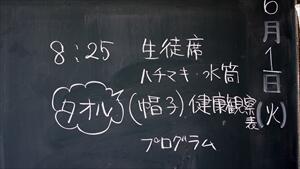 6月1日(火)
8:25 生徒席
ハチマキ・水筒
タオル (帽子) 健康観察表
プログラム